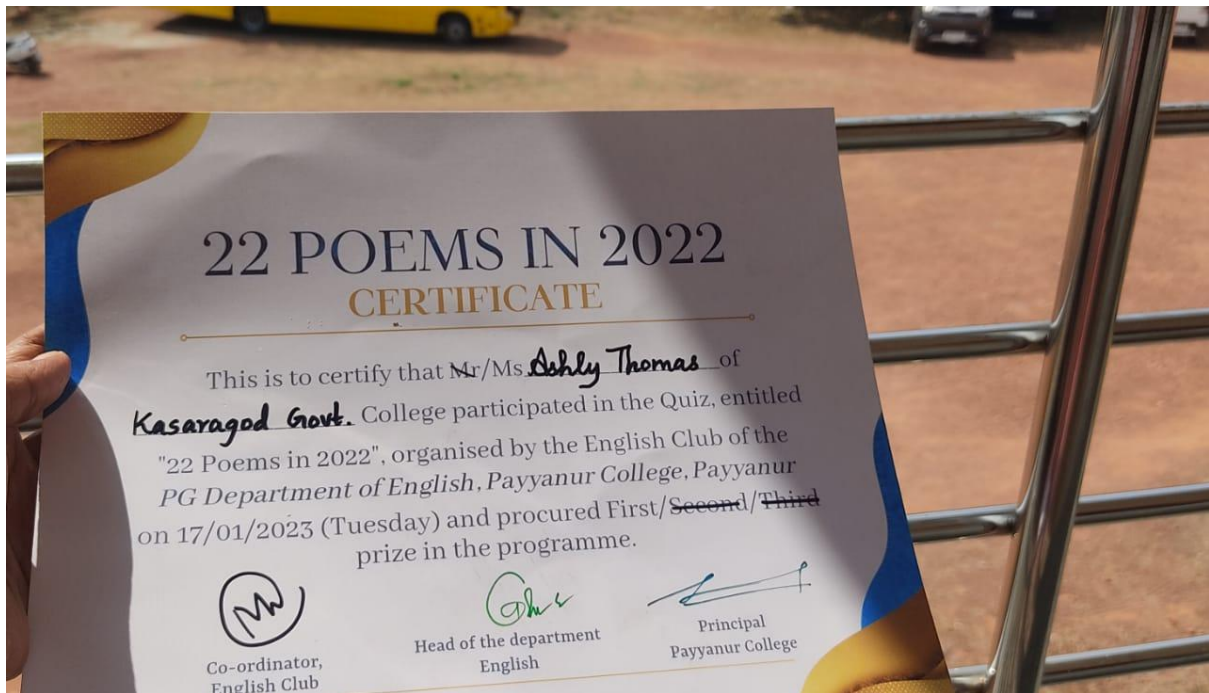 22 POEMS IN 2022
CERTIFICATE
This is to certify that Mr/Ms. Ashly Thomas of
Kasaragod Govt. College participated in the Quiz, entitled
"22 Poems in 2022", organised by the English Club of the
PG Department of English, Payyanur College, Payyanur
on 17/01/2023 (Tuesday) and procured First/Second/Third
prize in the programme.
Co-ordinator,
English Club
Head of the department
English
Principal
Payyanur College